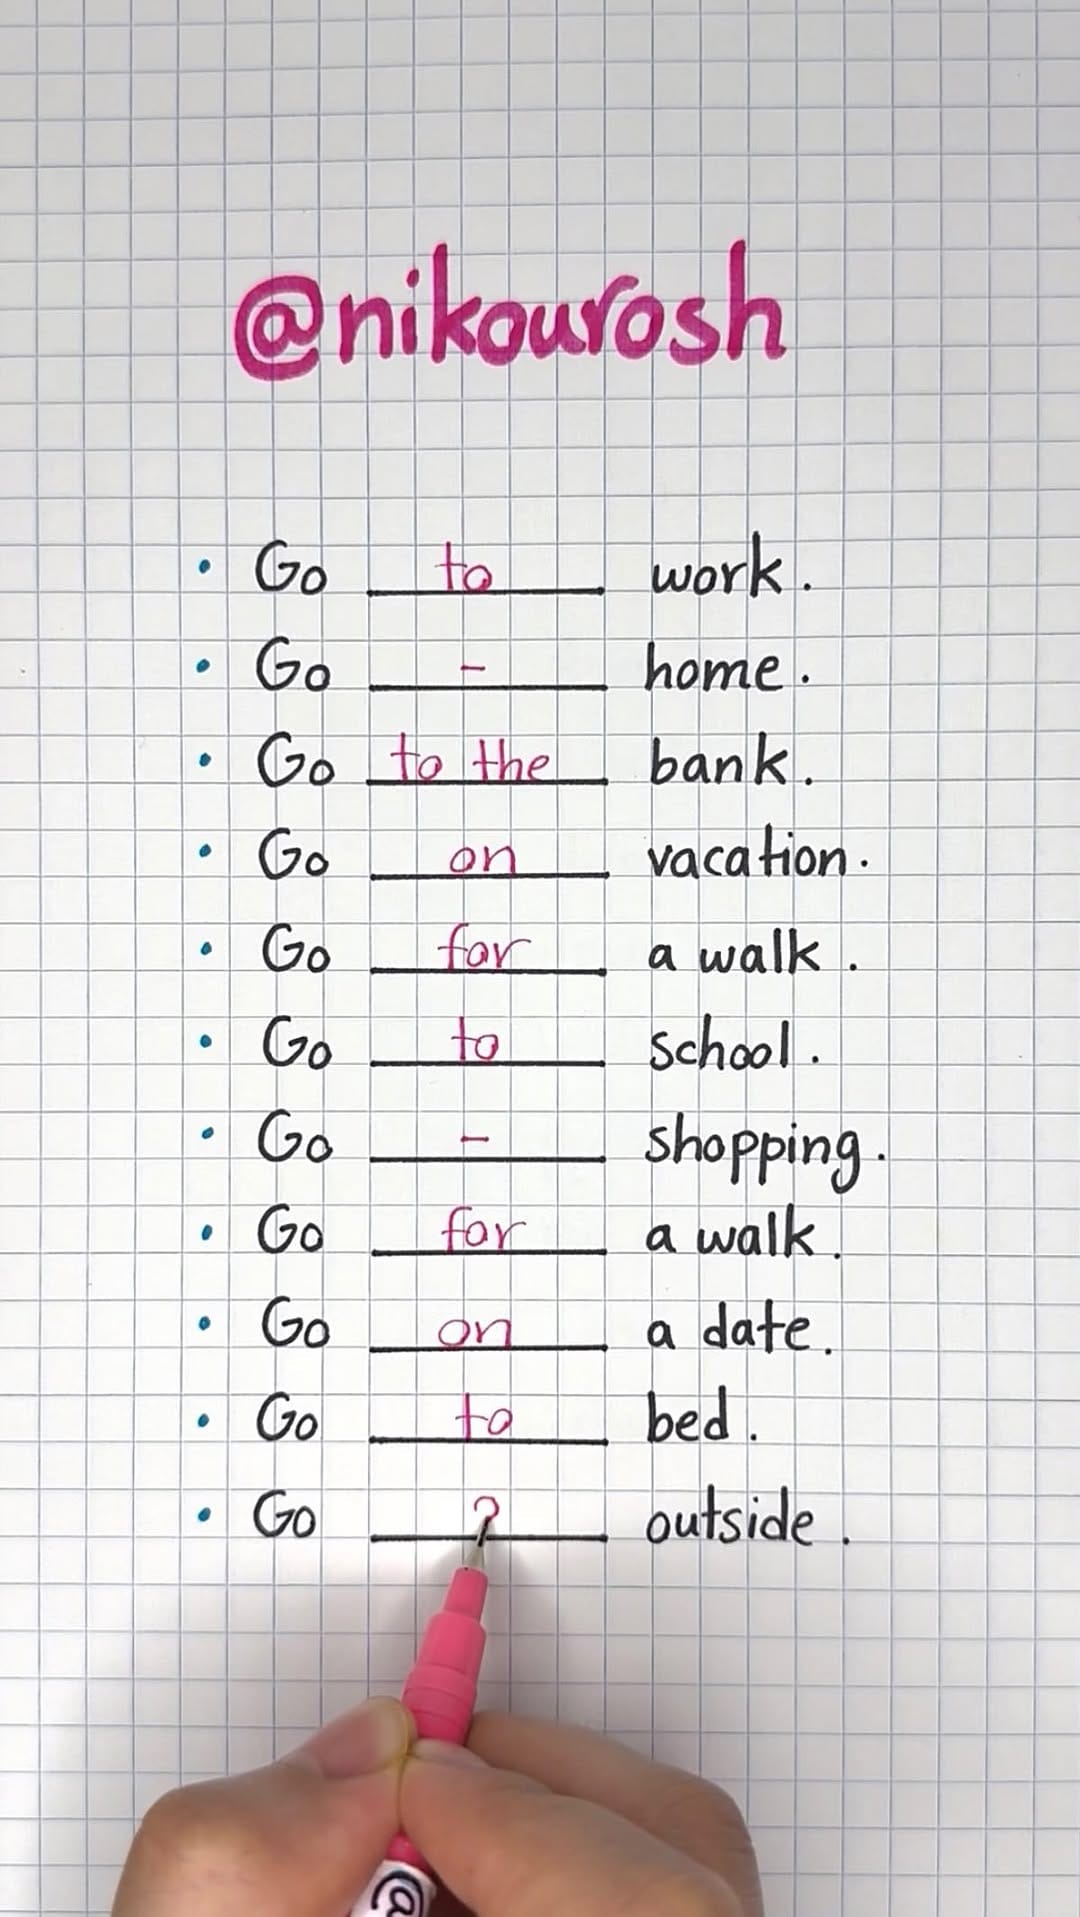 @nikourosh
• Go to work.
• Go - home.
• Go to the bank.
• Go on vacation.
• Go for a walk.
• Go to school.
• Go - shopping.
• Go for a walk.
• Go on a date.
• Go to bed.
• Go ? outside.
@